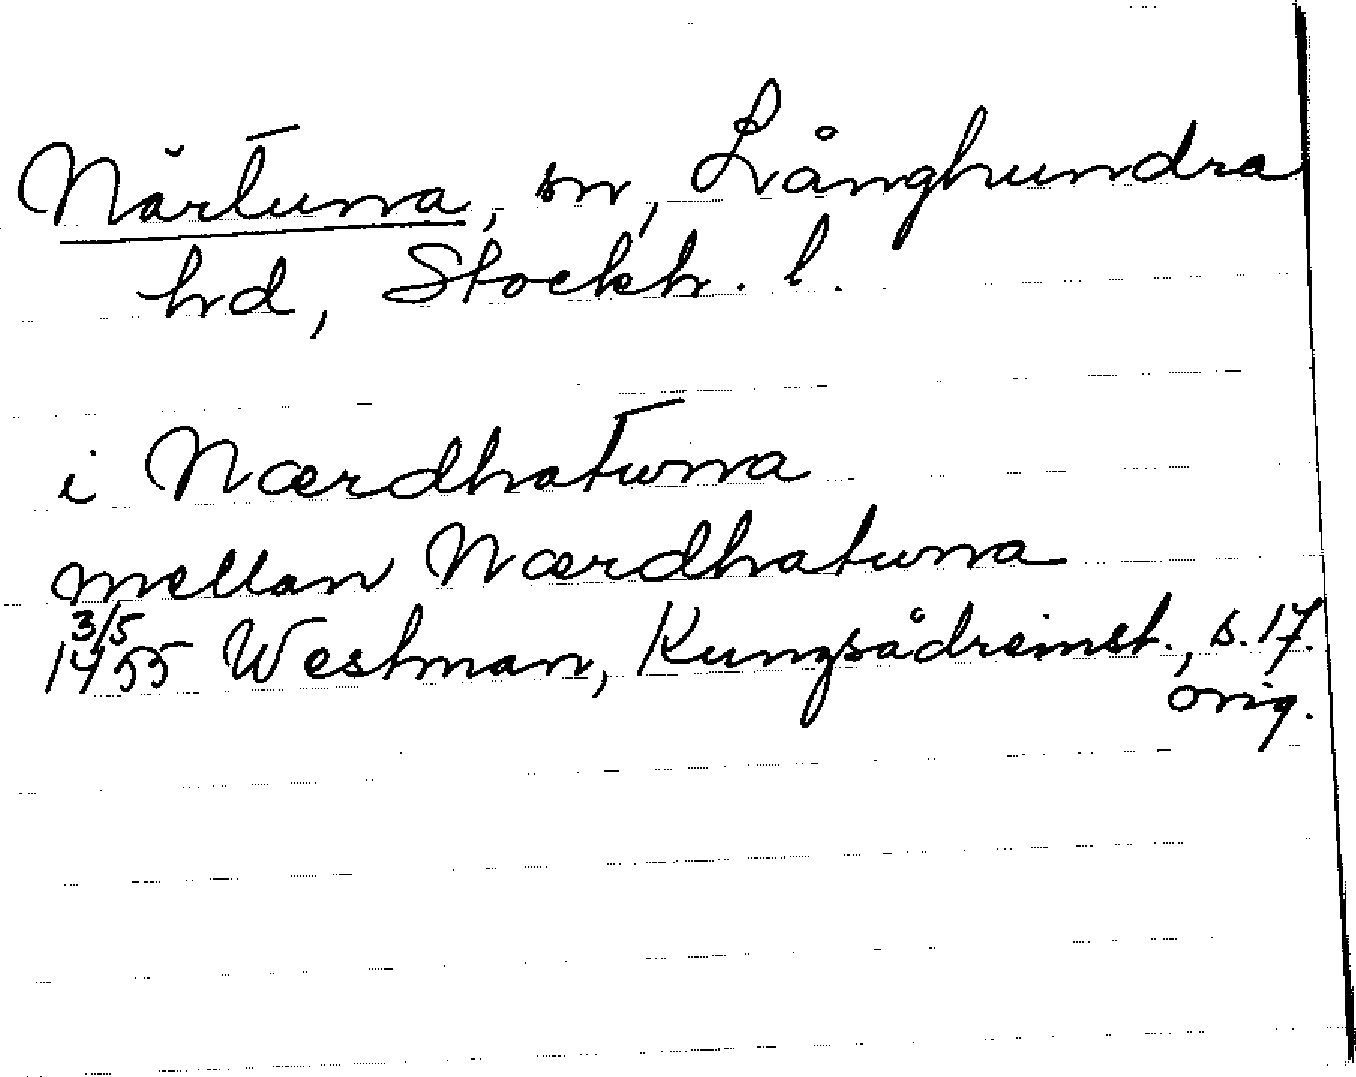 Närtuna, sn, Långhundra
hrd, Stockh. l.
i Nærdhatuna
mellan Nærdhatuna
3/5
1455 Westman, Kungsådreinst., s. 17.
orig.